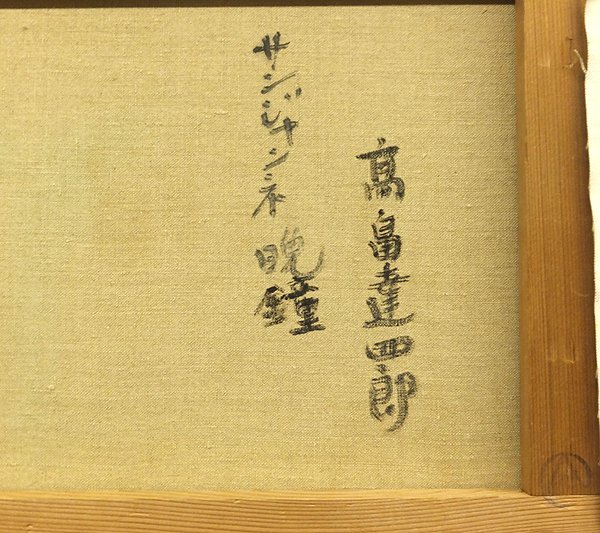 高畠達四郎
サンジャンネ晩鐘